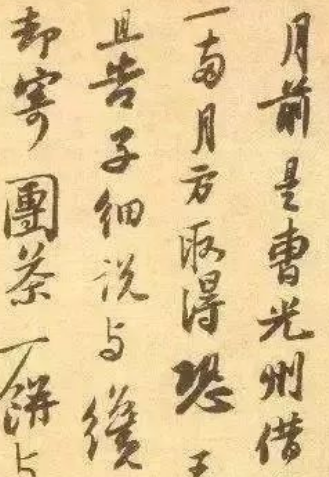 月前是曹光州借
一兩月方取得恐王
且告子細說与纔
却寄團茶一餅与